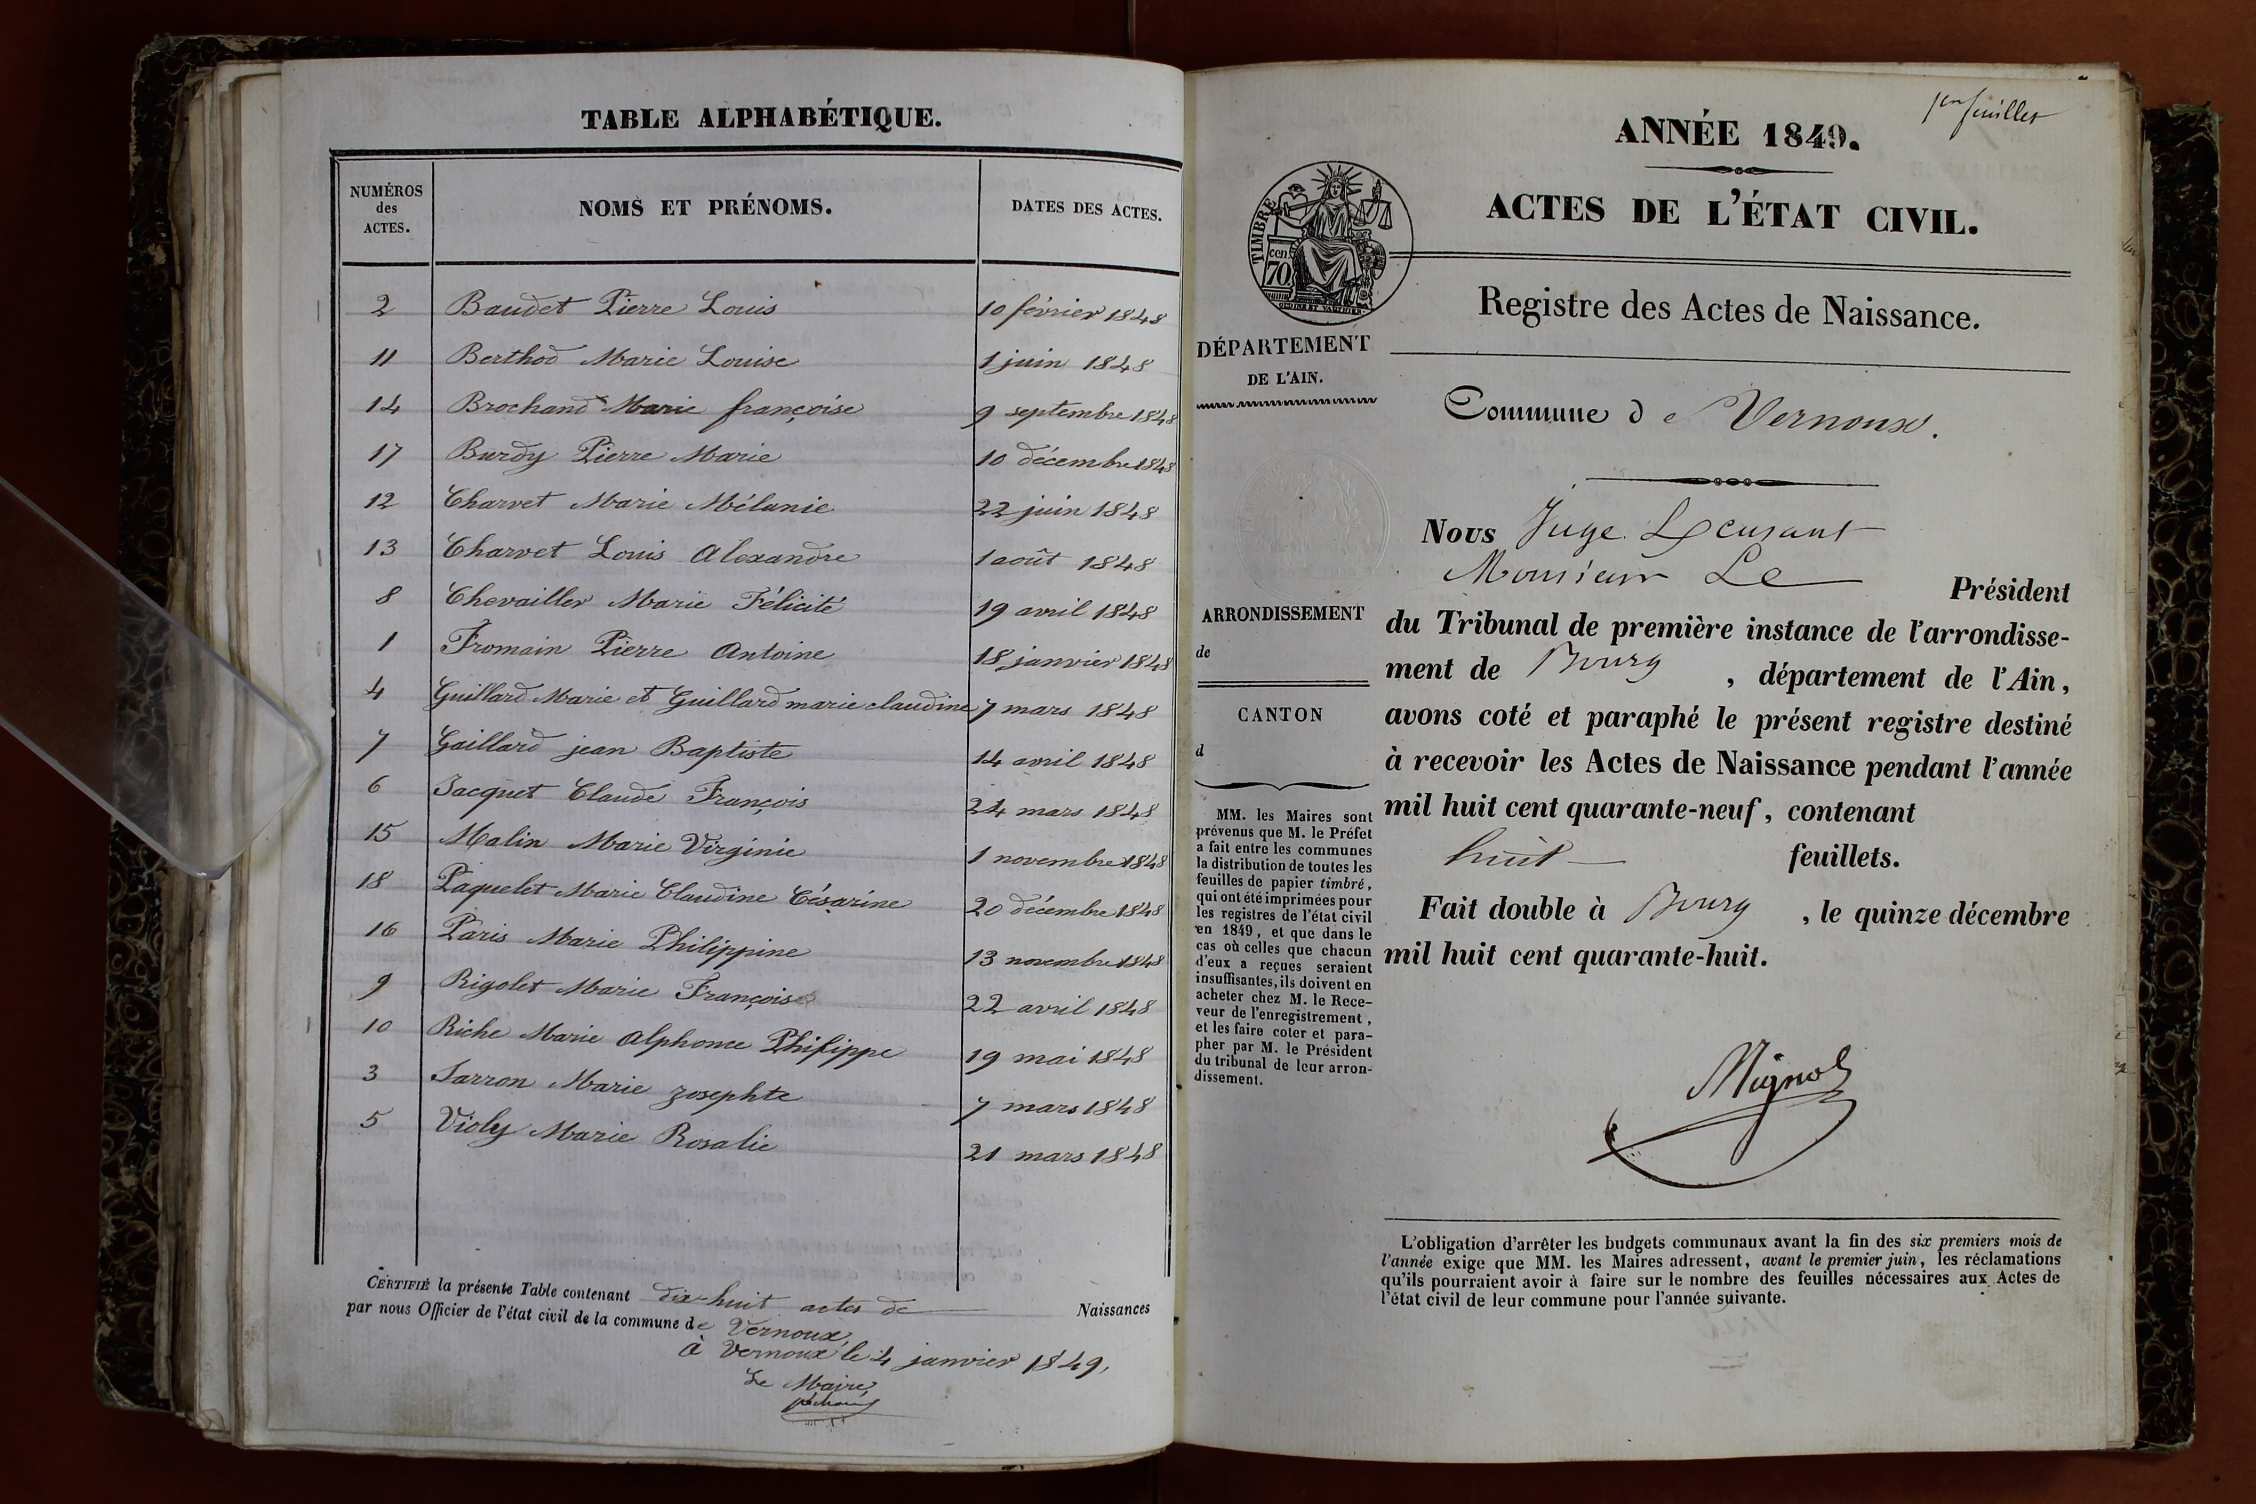 TABLE ALPHABÉTIQUE.
NUMÉROS des ACTES. NOMS ET PRÉNOMS. DATES DES ACTES.
2 Baudet Pierre Louis 10 février 1848
11 Berthod Marie Louise 1 juin 1848
14 Brochand Marie françoise 9 septembre 1848
17 Burdy Pierre Marie 10 décembre 1848
12 Charvet Marie Mélanie 22 juin 1848
13 Charvet Louis Alexandre 1 août 1848
8 Chevailler Marie Félicité 19 avril 1848
1 Fromain Pierre Antoine 18 janvier 1848
4 Guillard Marie et Guillard marie claudine 7 mars 1848
7 Gaillard jean Baptiste 14 avril 1848
6 Jacquet Claude François 24 mars 1848
15 Malin Marie Virginie 1 novembre 1848
18 Paquelet Marie Claudine Césarine 20 décembre 1848
16 Paris Marie Philippine 13 novembre 1848
9 Rigolet Marie Françoise 22 avril 1848
10 Riche Marie Alphonce Philippe 19 mai 1848
3 Sarron Marie Josephte 7 mars 1848
5 Violy Marie Rosalie 21 mars 1848
CERTIFIÉ la présente Table contenant dix-huit actes de Naissances
par nous Officier de l'état civil de la commune de Vernoux,
à Vernoux le 4 janvier 1849,
Le Maire,
1er feuillet
ANNÉE 1849.
ACTES DE L'ÉTAT CIVIL.
TIMBRE
70 cen
Registre des Actes de Naissance.
DÉPARTEMENT
DE L'AIN.
Commune de Vernoux.
Nous Juge
Monsieur Le Président
du Tribunal de première instance de l'arrondisse-
ment de Bourg, département de l'Ain,
avons coté et paraphé le présent registre destiné
à recevoir les Actes de Naissance pendant l'année
mil huit cent quarante-neuf, contenant
huit feuillets.
Fait double à Bourg, le quinze décembre
mil huit cent quarante-huit.
ARRONDISSEMENT
de
CANTON
d
MM. les Maires sont
prévenus que M. le Préfet
a fait entre les communes
la distribution de toutes les
feuilles de papier timbré,
qui ont été imprimées pour
les registres de l'état civil
en 1849, et que dans le
cas où celles que chacun
d'eux a reçues seraient
insuffisantes, ils doivent en
acheter chez M. le Rece-
veur de l'enregistrement,
et les faire coter et para-
pher par M. le Président
du tribunal de leur arron-
dissement.
Mignot
L'obligation d'arrêter les budgets communaux avant la fin des six premiers mois de
l'année exige que MM. les Maires adressent, avant le premier juin, les réclamations
qu'ils pourraient avoir à faire sur le nombre des feuilles nécessaires aux Actes de
l'état civil de leur commune pour l'année suivante.